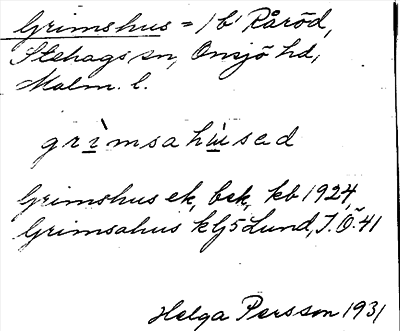 Grimshus = 1 b' Råröd,
Stehags sn, Onsjö hd,
Malm. l.
grìmsahùsad
Grimshus ek, bek, kb 1924,
Grimsahus klj5 Lund, J.Ö. 41
Helga Persson 1931